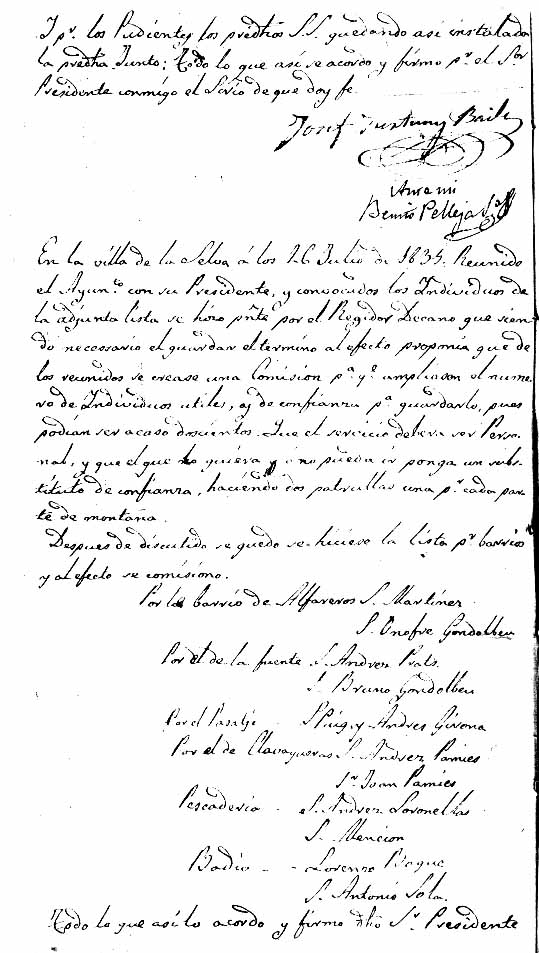 Y pr. los Pudientes los predhos S.S. quedando asi instalada
la predha Junta; Todo lo que asi se acordo y firmo pr. el Sor
Presidente conmigo el Srio de que doy fe.
Josef
Ante mi
Benito Pelleja
En la villa de la Selva á los 16 Julio de 1835. Reunido
el Ayunto. con su Presidente, y convocados los Individuos de
la adjunta lista se hizo pnte por el Regidor Decano que sien
do necessario el guardar el termino al efecto proponia que de
los reunidos se crease una Comision pa. qe. ampliasen el nume
ro de Individuos utiles, y de confianza pa. guardarlo, pues
podian ser acaso doscientos. Que el servicio debera ser Perso
nal, y que el que no quiera y ó no pueda ir ponga un subs
tituto de confianza, haciendo dos patrullas una pr. cada par
te de montaña.
Despues de discutido se quedo se hiciese la lista pr. barrios
y al efecto se comisiono.
Por los barrio de Alfareros S. Martinez
S. Onofre Gondolbeu
Por el de la fuente S. Andres Prats.
S. Bruno Gondolbeu
Por el Pasalje S Puig y Andres Girona
Por el de Clavagueras S. Andrez Pamies
Sr. Joan Pamies
Pescaderia - S. Andrez
S. Mencion
Badio - - Lorenzo Boque
S. Antonio Sola.
Todo lo que asi lo acordo y firmo dho Sr. Presidente